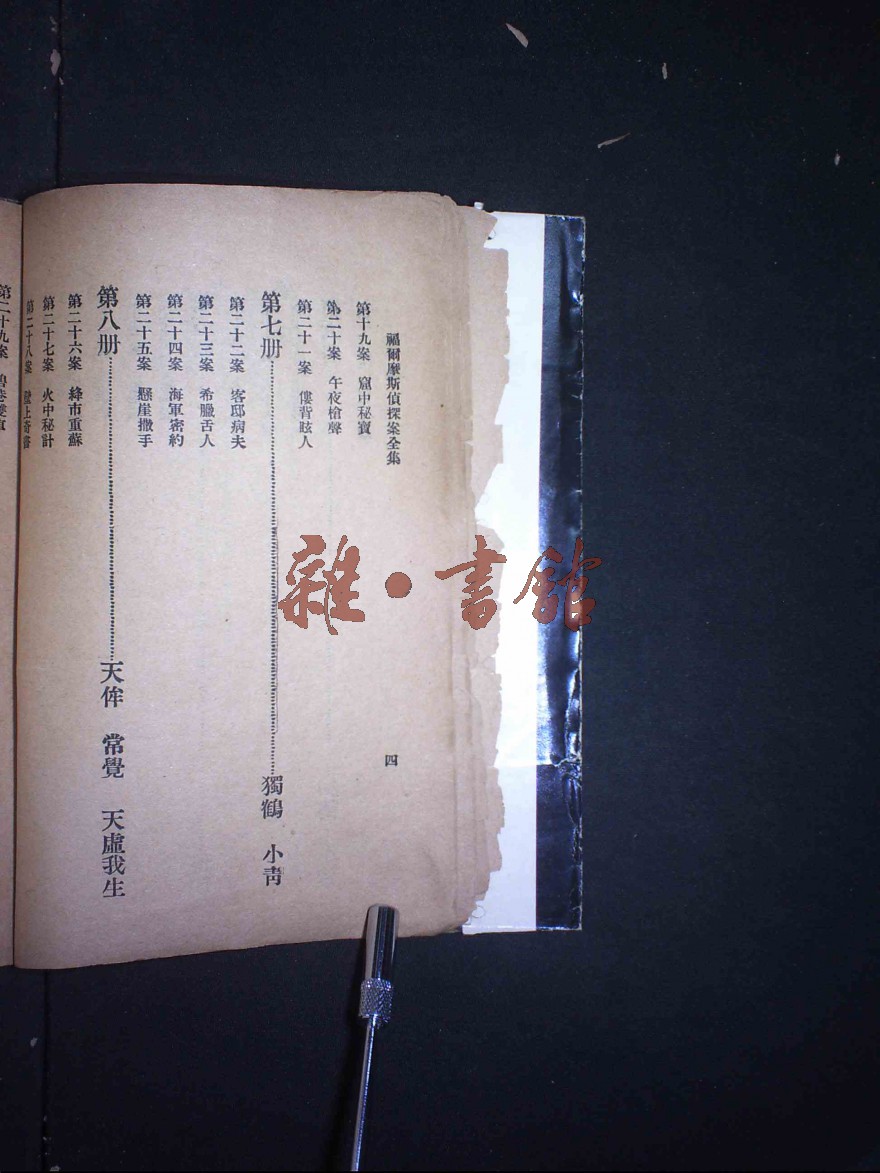 福爾摩斯偵探案全集
四
第十九案 窟中秘寶
第二十案 午夜槍聲
第二十一案 僂背眩人
第七册 獨鶴 小靑
第二十二案 客邸病夫
第二十三案 希臘舌人
第二十四案 海軍密約
第二十五案 懸崖撒手
第八册 天侔 常覺 天虛我生
第二十六案 絳市重蘇
第二十七案 火中秘計
第二十八案 壁上奇書
第二十九案
雜·書館